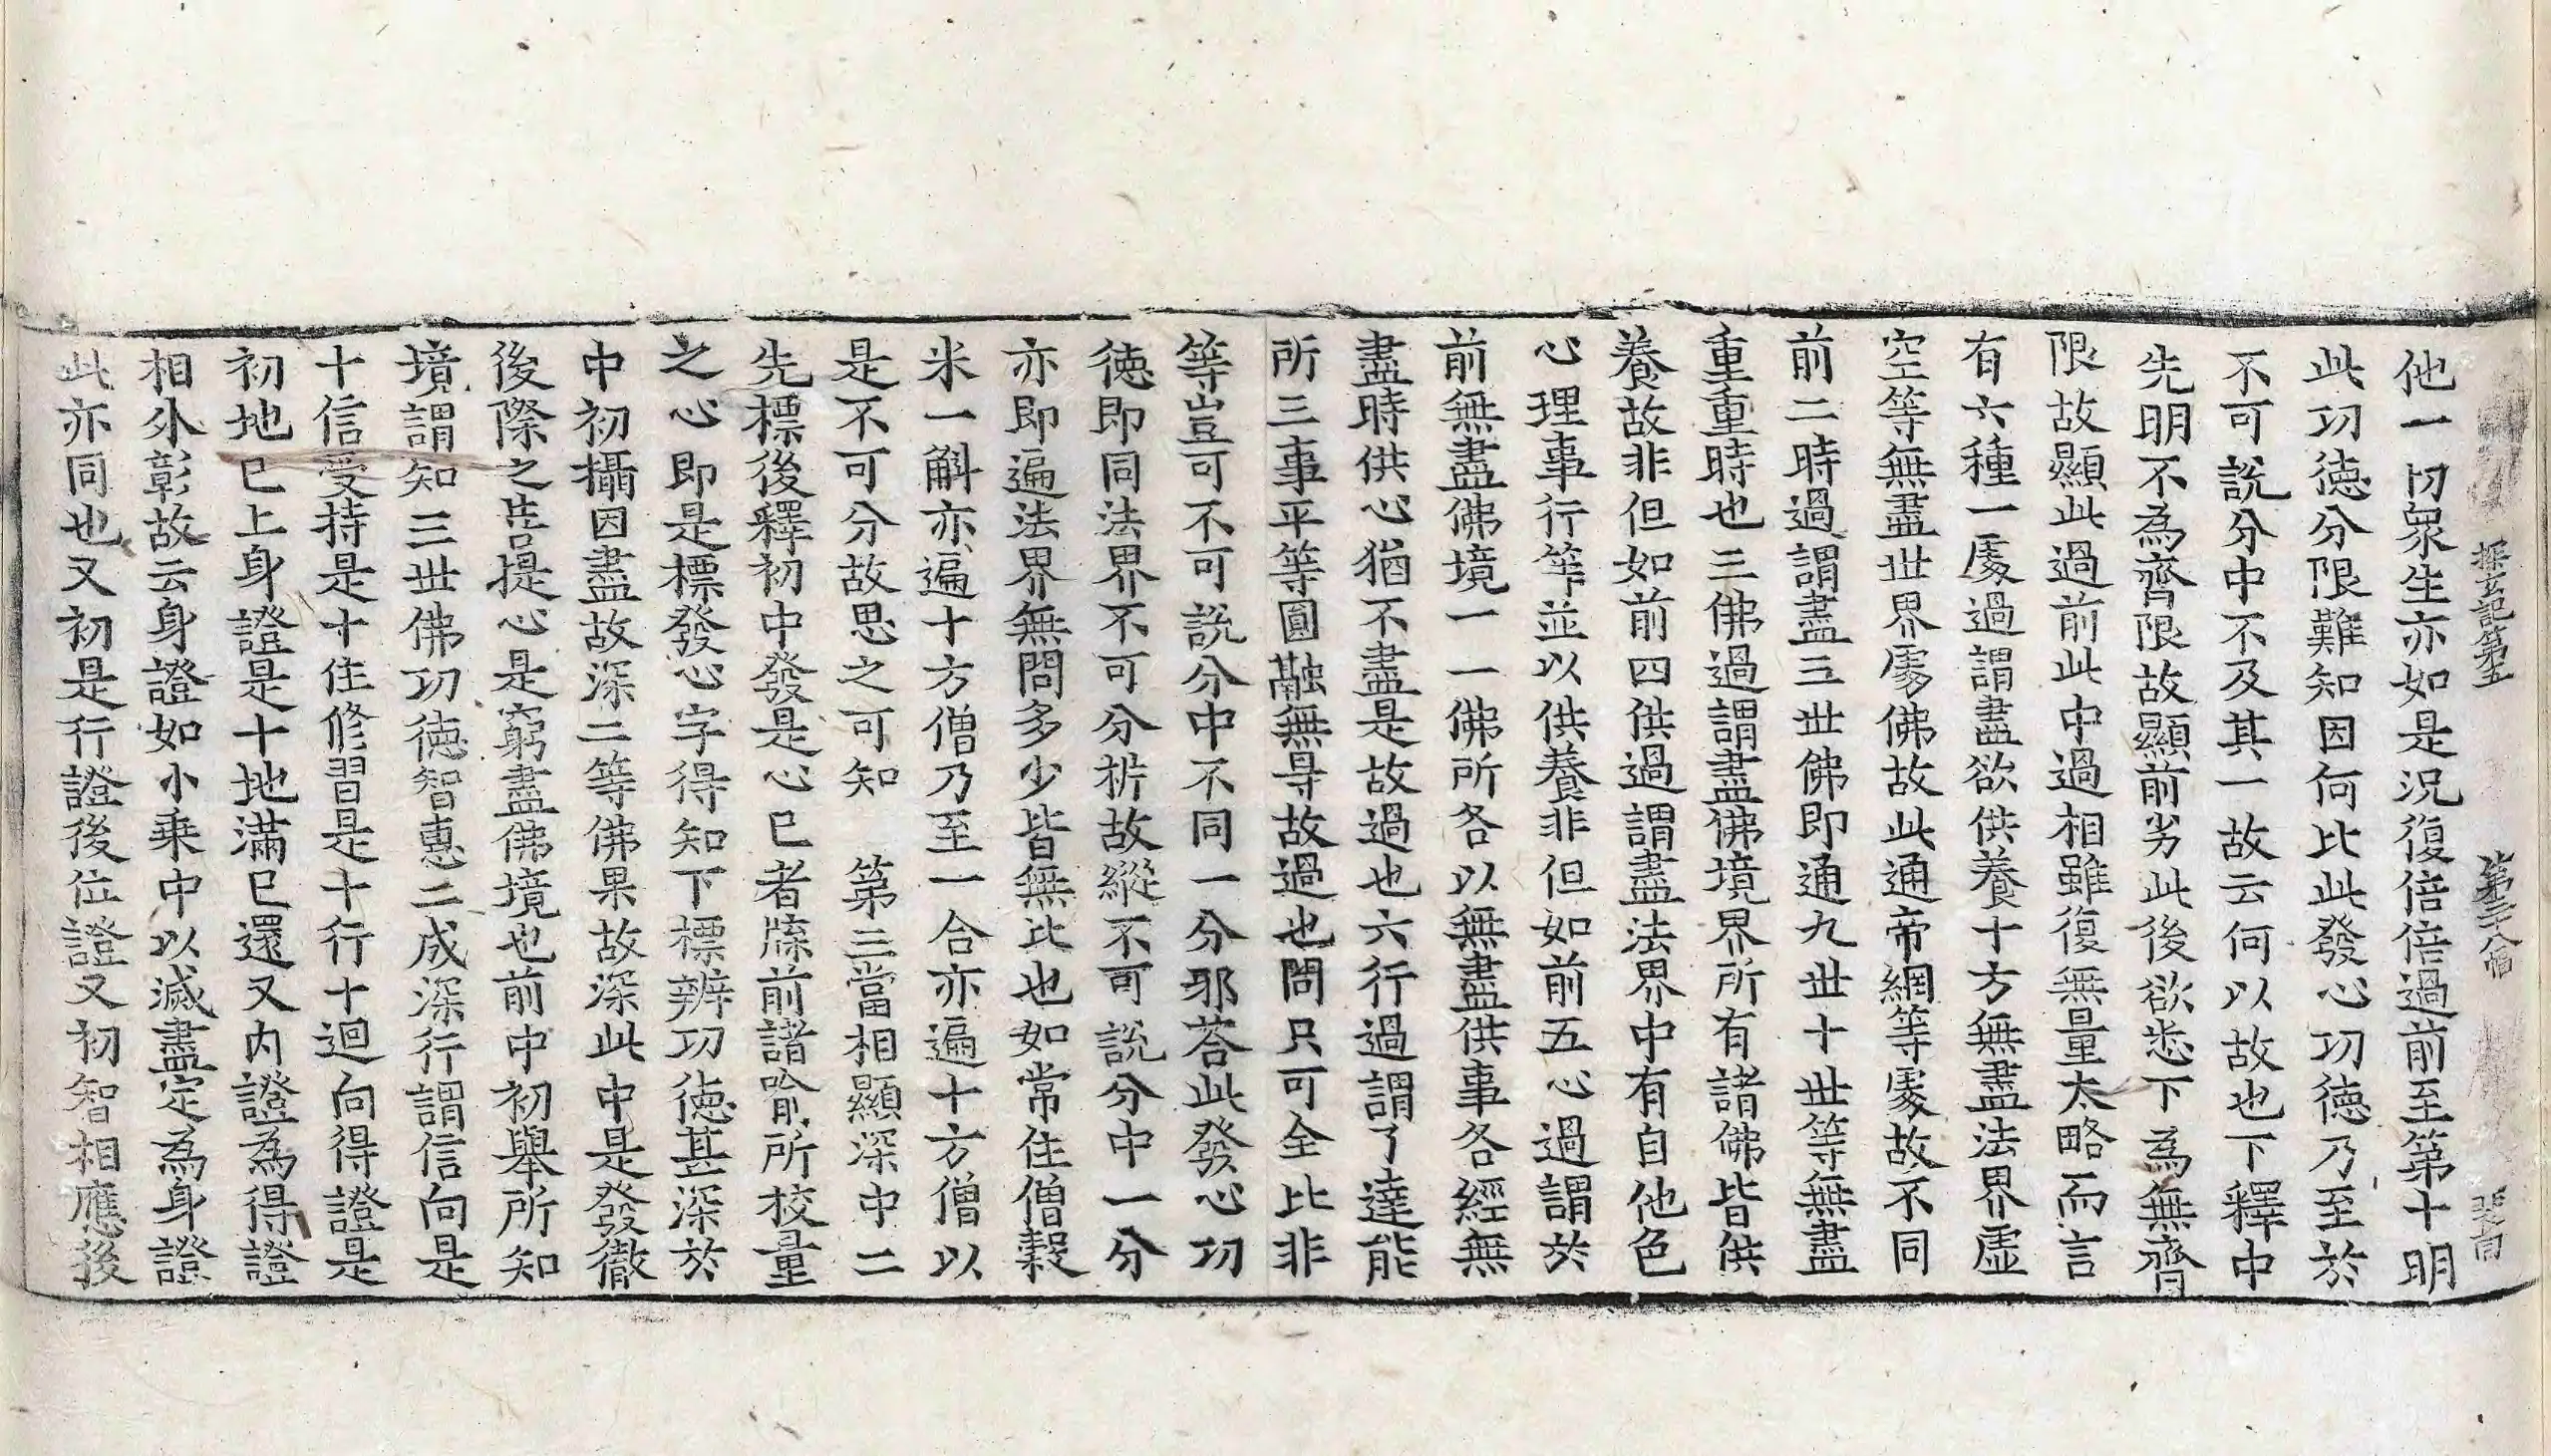 探玄記第五 第二十八 張
他一切眾生亦如是況復倍倍過前至第十明
此功德分限難知因何比此發心功德乃至於
不可說分中不及其一故云何以故也下釋中
先明不為齊限故顯前劣此後欲悉下為無齊
限故顯此過前此中過相雖復無量太略而言
有六種一處過謂盡欲供養十方無盡法界虛
空等無盡世界處佛故此通帝網等處故不同
前二時過謂盡三世佛即通九世十世等無盡
重重時也三佛過謂盡佛境界所有諸佛皆供
養故非但如前四供過謂盡法界中有自他色
心理事行等並以供養非但如前五心過謂於
前無盡佛境一一佛所各以無盡供事各經無
盡時供心猶不盡是故過也六行過謂了達能
所三事平等圓融無㝵故過也問只可全比非
等豈可不可說分中不同一分耶荅此發心功
德即同法界不可分析故縱不可說分中一分
亦即遍法界無問多少皆無比也如常住僧穀
米一斛亦遍十方僧乃至一合亦遍十方僧以
是不可分故思之可知 第三當相顯深中二
先標後釋初中發是心已者牒前諸喻所校量
之心即是標發心字得知下標辨功德甚深於
中初攝因盡故深二等佛果故深此中是發徹
後際之菩提心是窮盡佛境也前中初舉所知
境謂知三世佛功德智惠二成深行謂信向是
十信受持是十住修習是十行十迴向得證是
初地已上身證是十地滿已還又內證為得證
相外彰故云身證如小乘中以滅盡定為身證
此亦同也又初是行證後位證又初智相應後